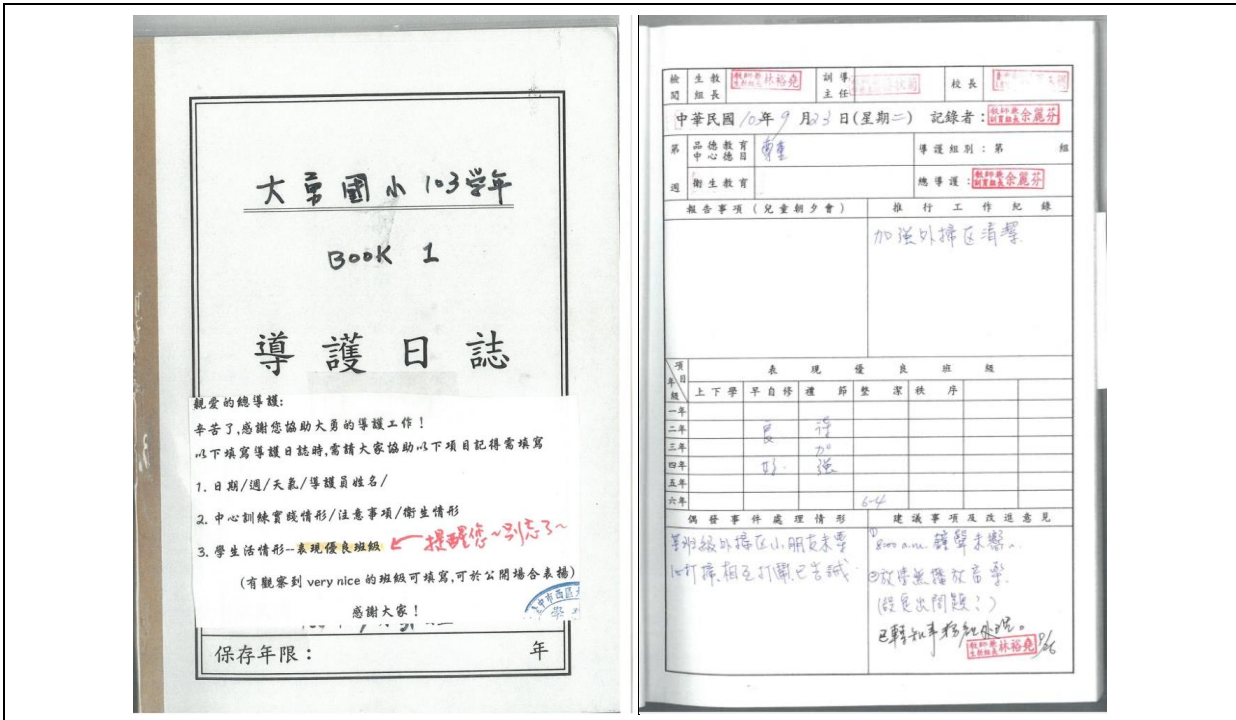 大勇國小 103學年
BOOK 1
導護日誌
親愛的總導護:
辛苦了,感謝您協助大勇的導護工作!
以下填寫導護日誌時,需請大家協助以下項目記得需填寫
1. 日期/週/天氣/導護員姓名/
2. 中心訓練實踐情形/注意事項/衛生情形
3. 學生活情形--表現優良班級 提醒您~別忘了~
(有觀察到 very nice 的班級可填寫,可於公開場合表揚)
感謝大家!
保存年限: 年
檢閱 生教組長 教師兼 林裕堯 訓導主任 校長
中華民國 103年 9月 23日(星期二) 記錄者: 教師兼 余麗芬
第 週 品德教育中心德目 尊重 導護組別:第 組
衛生教育 總導護: 教師兼 余麗芬
報告事項(兒童朝夕會) 推行工作紀錄
加強外掃区清潔
項目 年級 表現優良班級
上下學 早自修 禮節 整潔 秩序
一年
二年 良 待
三年 加
四年 好 強
五年
六年 6-4
偶發事件處理情形 建議事項及改進意見
班級外掃区小朋友未
打掃,相互打鬧,已告誡
① 8:00 a.m. 鐘聲未響
②放學無播放音樂
(設定出問題?)
已轉知事務組處理。
教師兼 林裕堯 9/26